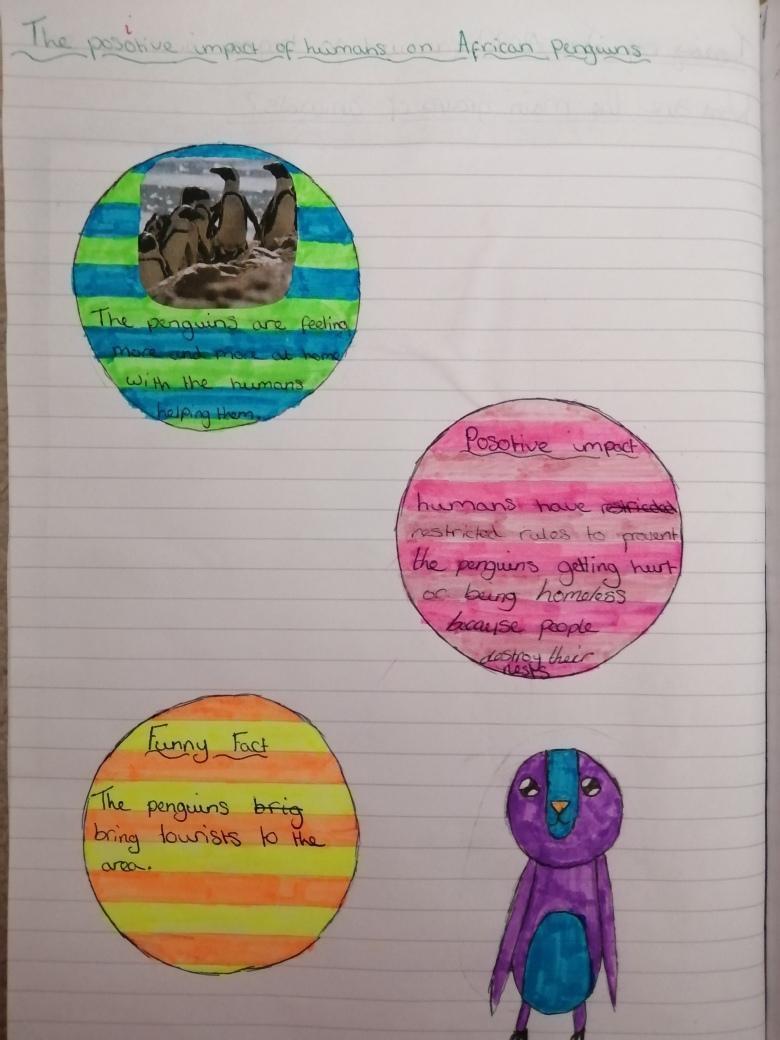 The posotive impact of humans on African Penguins
i
The penguins are feeling
more and more at home
with the humans
helping them.
Posotive impact
humans have restricded
restricted rules to prevent
the penguins getting hurt
or being homeless
because people
destroy their
nests
Funny Fact
The penguins brig
bring tourists to the
area.